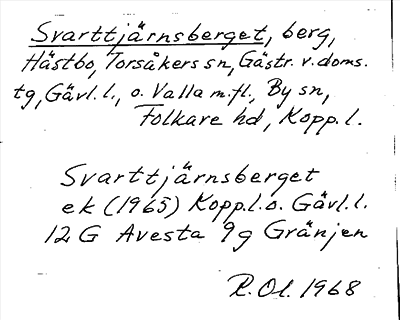 Svarttjärnsberget, berg,
Hästbo, Torsåkers sn, Gästr. v. doms.
tg, Gävl. l., o. Valla m.fl., By sn,
Folkare hd, Kopp. l.
Svarttjärnsberget
ek (1965) Kopp.l.o. Gävl.l.
12 G Avesta 9g Gränjen
R.Ol. 1968